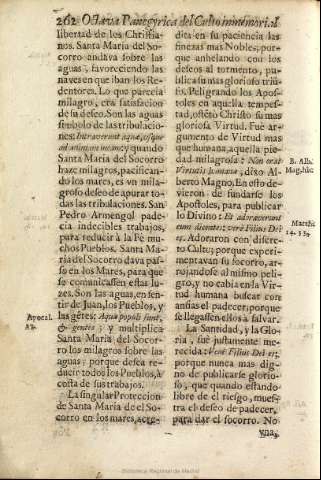 262 Octava Panegyrica del Culto inmemorial
libertad de los Christia-
nos. Santa Maria del So-
corro andava sobre las
aguas, favoreciendo las
naves en que iban los Re-
dentores. Lo que parecia
milagro, era satisfacion
de su deseo. Son las aguas
symbolo de las tribulacio-
nes: Intraverunt aquæ, usque
ad animam meam: y quando
Santa Maria del Socorro
haze milagros, pacifican-
do los mares, es un mila-
groso deseo de apurar to-
das las tribulaciones. San
Pedro Armengol pade-
cia indecibles trabajos,
para reducir à la Fè mu-
chos Pueblos. Santa Ma-
ria del Socorro dava pas-
so en los Mares, para que
se comunicassen estas lu-
zes. Son las aguas, en sen-
tir de Juan, los Pueblos, y
las gẽtes: Aquæ populi sunt,
& gentes; y multiplica
Santa Maria del Socor-
ro los milagros sobre las
aguas; porque desea re-
ducir todos los Pueblos, à
costa de sus trabajos.
La singular Proteccion
de Santa Maria de el So-
corro en los mares, acre-
Apocal.
17.
dita en su paciencia las
finezas mas Nobles; por-
que anhelando con los
deseos al tormento, pu-
blica su mas glorioso triũ-
fo. Peligrando los Apos-
toles en aquella tempes-
tad, ostẽtò Christo su mas
gloriosa Virtud. Fue ar-
gumento de Virtud mas
que humana, aquella pie-
dad milagrosa: Non erat
Virtutis humanæ, dixo Al-
berto Magno. En esto de-
vieron de fundarse los
Apostoles, para publicar
lo Divino: Et adoraverunt
eum dicentes: verè Filius Dei
es. Adoraron con discre-
to Culto; porque experi-
mentavan su socorro, ar-
rojandose al mismo peli-
gro, y no cabia en la Vir-
tud humana buscar con
ansias el padecer, porque
se llegassen ellos à salvar.
La Santidad, y la Glo-
ria, fue justamente me-
recida: Verè Filius Dei es;
porque nunca mas dig-
no de publicarse glorio-
so, que quando estando
libre de el riesgo, mues-
tra el deseo de padecer,
para dar el socorro. No
una,
B. Alb.
Mag. hîc
Matth.
14. 33.
Biblioteca Regional de Madrid